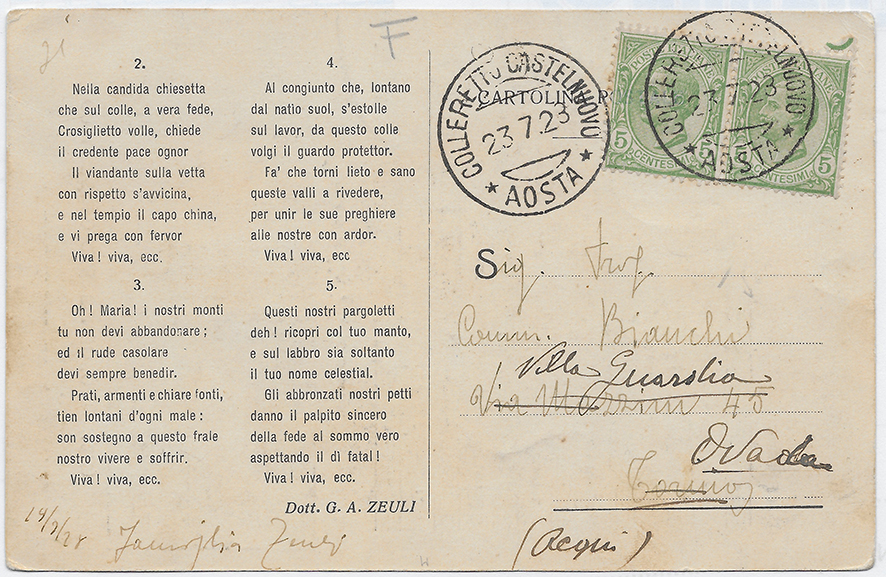 2.
Nella candida chiesetta
che sul colle, a vera fede,
Crosiglietto volle, chiede
il credente pace ognor
Il viandante sulla vetta
con rispetto s'avvicina,
e nel tempio il capo china,
e vi prega con fervor
Viva! viva, ecc.
3.
Oh! Maria! i nostri monti
tu non devi abbandonare;
ed il rude casolare
devi sempre benedir.
Prati, armenti e chiare fonti,
tien lontani d'ogni male:
son sostegno a questo frale
nostro vivere e soffrir.
Viva! viva, ecc.
4.
Al congiunto che, lontano
dal natìo suol, s'estolle
sul lavor, da questo colle
volgi il guardo protettor.
Fa' che torni lieto e sano
queste valli a rivedere,
per unir le sue preghiere
alle nostre con ardor.
Viva! viva, ecc
5.
Questi nostri pargoletti
deh! ricopri col tuo manto,
e sul labbro sia soltanto
il tuo nome celestial.
Gli abbronzati nostri petti
danno il palpito sincero
della fede al sommo vero
aspettando il dì fatal!
Viva! viva, ecc.
Dott. G. A. ZEULI
Famiglia Zeuli
F
CARTOLINA
COLLERETTO CASTELNUOVO
23.7.23
* AOSTA *
COLLERETTO CASTELNUOVO
23.7.23
* AOSTA *
POSTE ITALIANE
5 CENTESIMI
CENTESIMI 5
Sig. Prof.
Comm. Bianchi
Villa Guardia
Via Mazzini 45
Ovada
Torino
(Acqui)